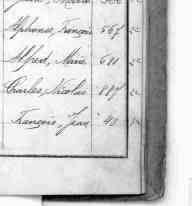 Alphonse, François 567 22
Alfred, Marie 611 22
Charles, Nicolas 887 22
François, Jean 43